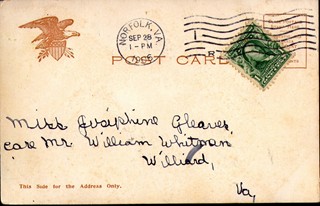 NORFOLK, VA.
SEP 28
1-PM
POST CARD
Miss Josephine Gleaves,
care Mr. William Whitman
Williard,
Va,
This Side for the Address Only.